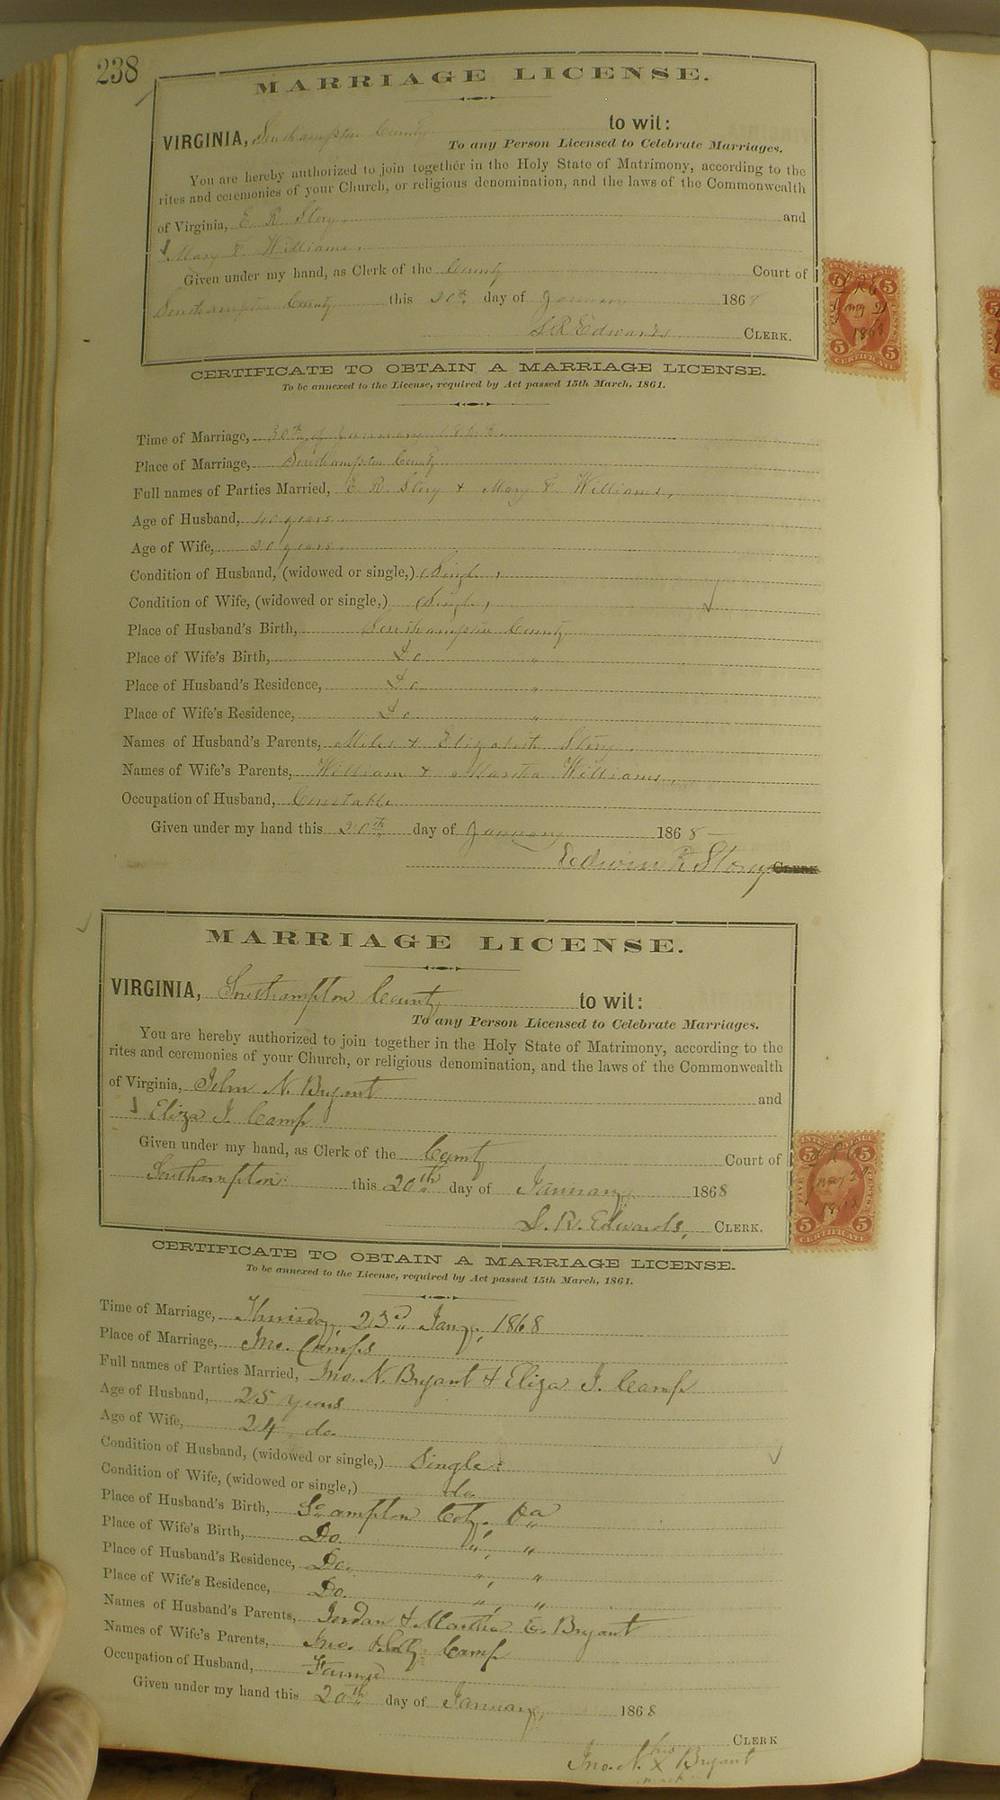 238
MARRIAGE LICENSE.
VIRGINIA, Southampton County to wit:
To any Person Licensed to Celebrate Marriages.
You are hereby authorized to join together in the Holy State of Matrimony, according to the
rites and ceremonies of your Church, or religious denomination, and the laws of the Commonwealth
of Virginia, E. R. Story and
Mary E. Williams.
Given under my hand, as Clerk of the County Court of
Southampton County this 20th day of January 1868
L R Edwards CLERK.
CERTIFICATE TO OBTAIN A MARRIAGE LICENSE.
To be annexed to the License, required by Act passed 15th March, 1861.
Time of Marriage, 30th of January 1868.
Place of Marriage, Southampton County
Full names of Parties Married, E. R. Story & Mary E. Williams,
Age of Husband, 40 years
Age of Wife, 20 years
Condition of Husband, (widowed or single,) Single,
Condition of Wife, (widowed or single,) Single,
Place of Husband's Birth, Southampton County
Place of Wife's Birth, Do "
Place of Husband's Residence, Do "
Place of Wife's Residence, Do "
Names of Husband's Parents, Miles & Elizabeth Story.
Names of Wife's Parents, William & Martha Williams.
Occupation of Husband, Constable
Given under my hand this 20th day of January 1868
Edwin R. Story CLERK
MARRIAGE LICENSE.
VIRGINIA, Southampton County to wit:
To any Person Licensed to Celebrate Marriages.
You are hereby authorized to join together in the Holy State of Matrimony, according to the
rites and ceremonies of your Church, or religious denomination, and the laws of the Commonwealth
of Virginia, John N. Bryant and
Eliza J. Camp
Given under my hand, as Clerk of the County Court of
Southampton this 20th day of January 1868
L. R. Edwards, CLERK.
CERTIFICATE TO OBTAIN A MARRIAGE LICENSE.
To be annexed to the License, required by Act passed 15th March, 1861.
Time of Marriage, Thursday, 23d Jany, 1868
Place of Marriage, Jno. Camps
Full names of Parties Married, Jno. N. Bryant & Eliza J. Camp
Age of Husband, 25 years
Age of Wife, 24 do.
Condition of Husband, (widowed or single,) Single.
Condition of Wife, (widowed or single,) do.
Place of Husband's Birth, So ampton Coty. Va
Place of Wife's Birth, Do. " "
Place of Husband's Residence, Do. " "
Place of Wife's Residence, Do. " "
Names of Husband's Parents, Jordan & Martha E. Bryant
Names of Wife's Parents, Jno. Camp
Occupation of Husband, Farmer
Given under my hand this 20th day of January, 1868
CLERK
his
Jno. N. X Bryant
mark